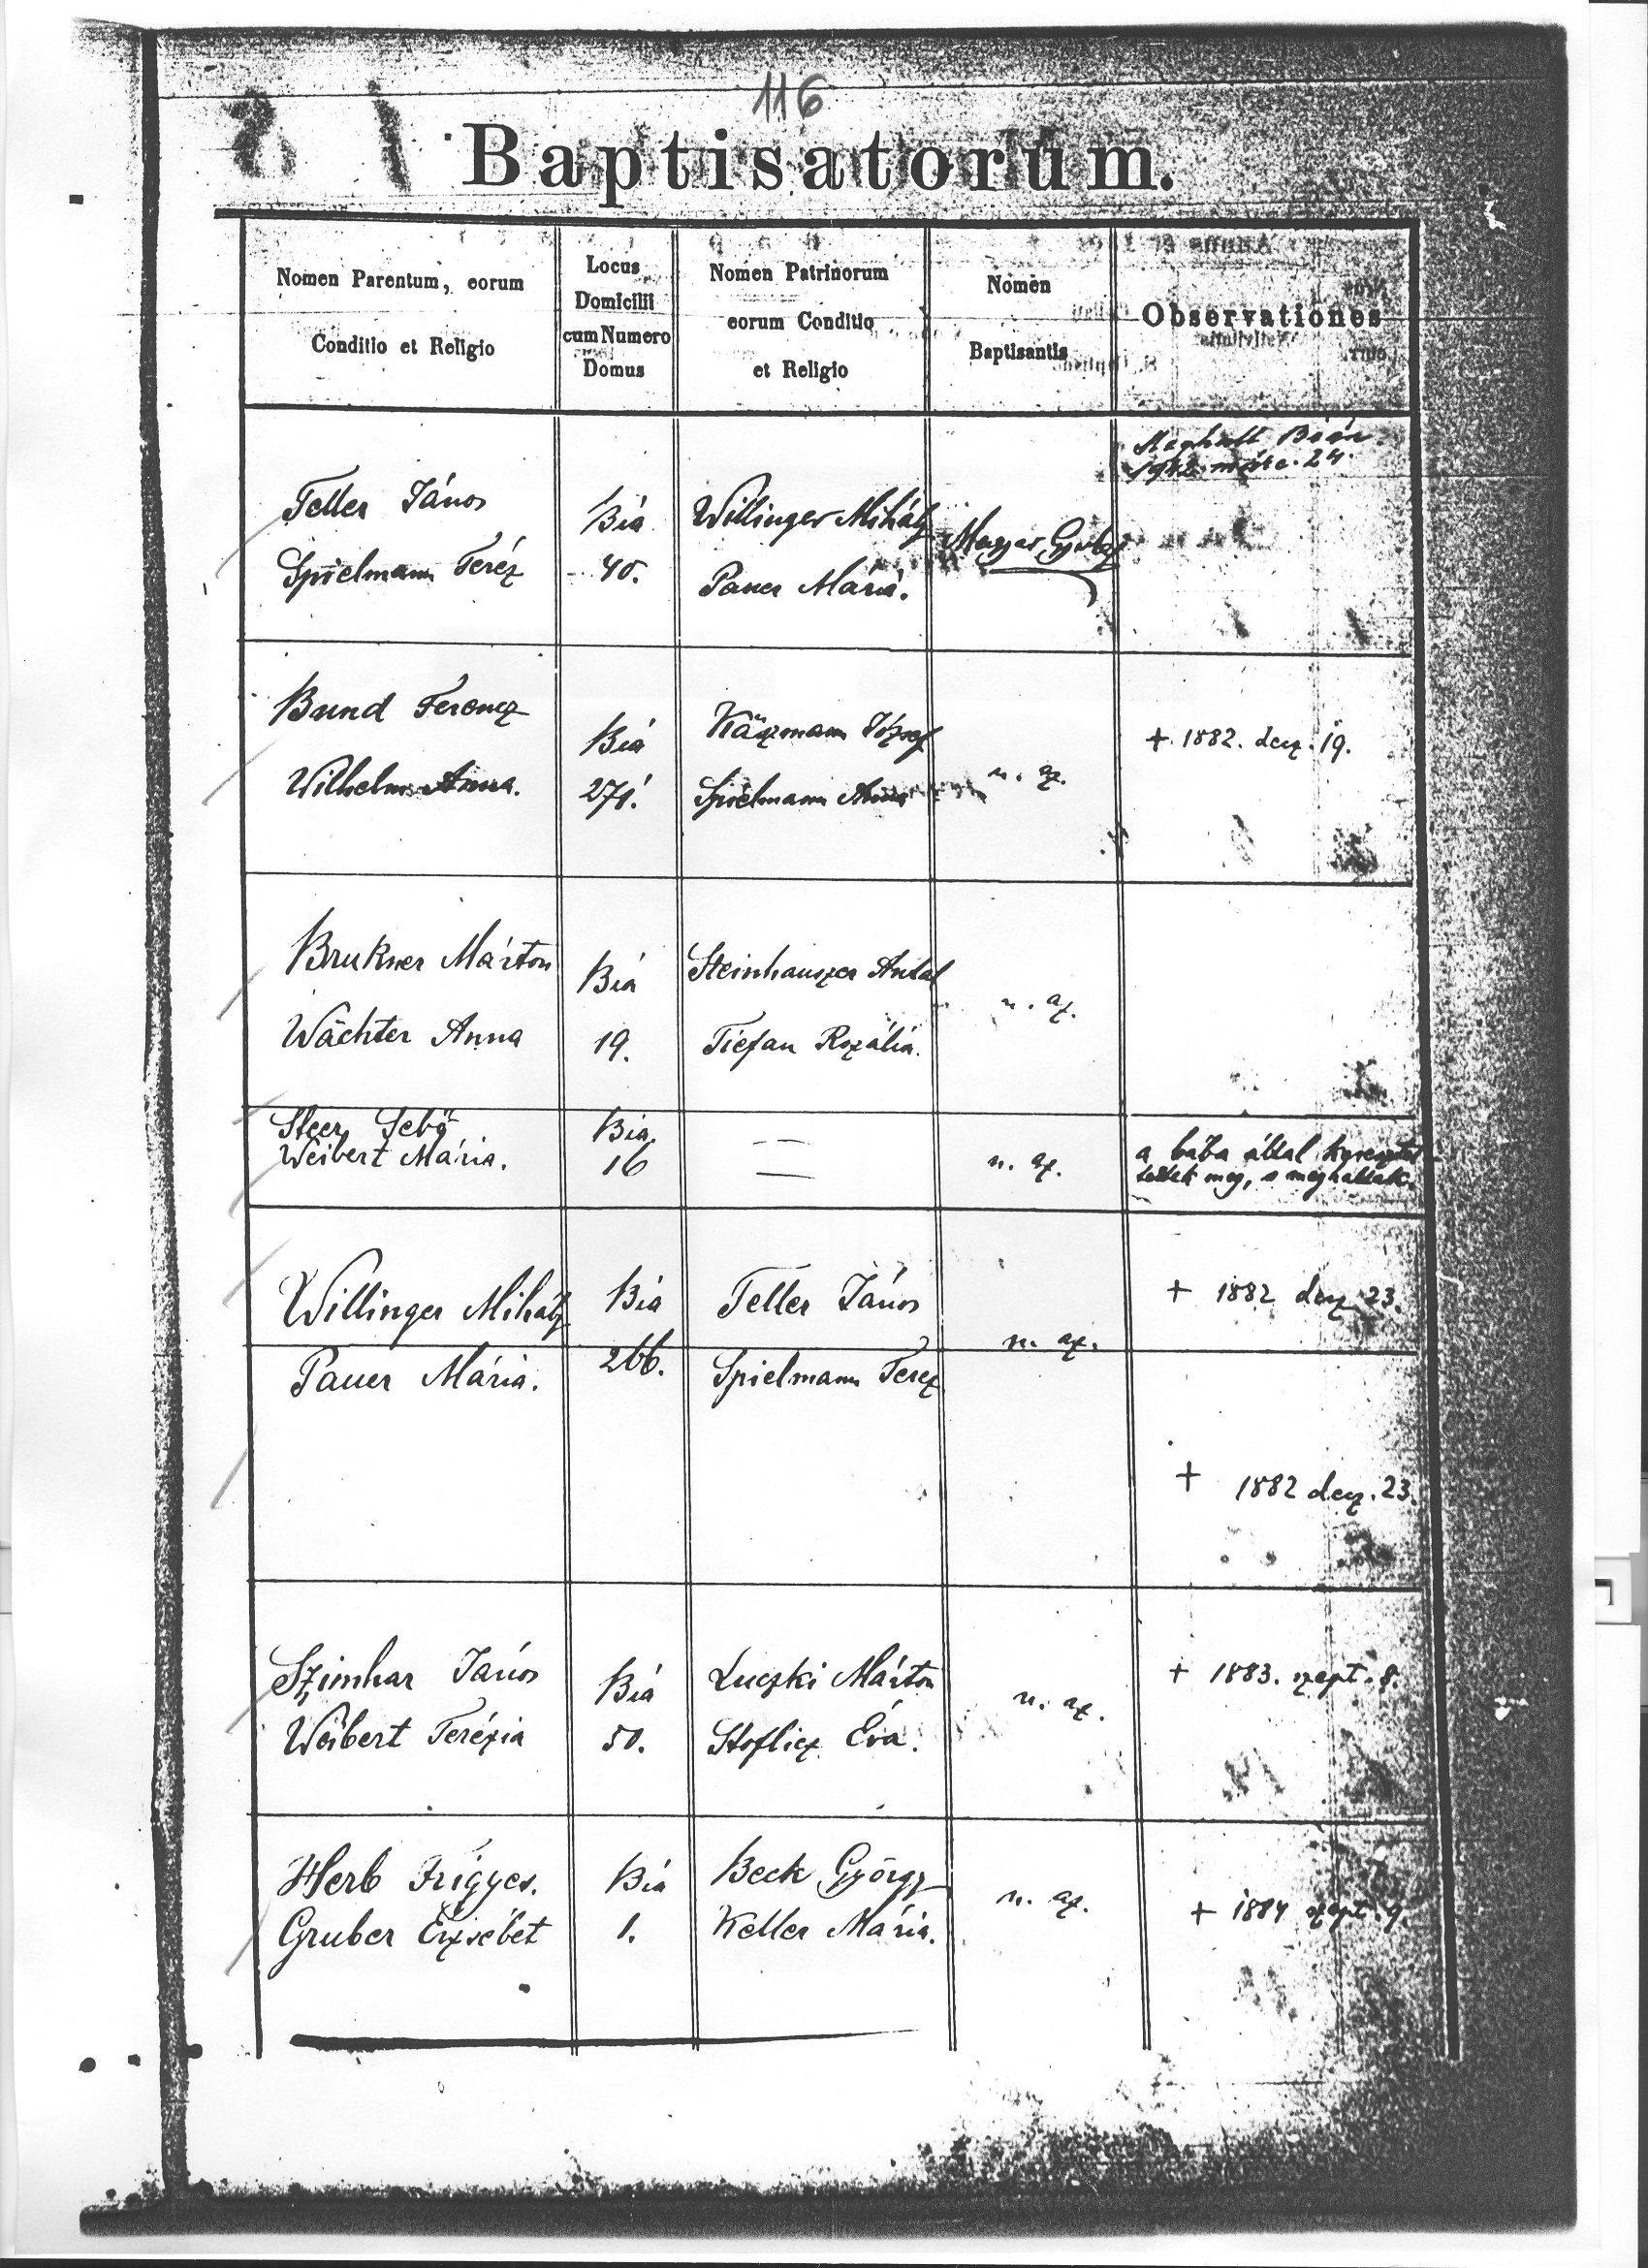 116
Baptisatorum.
Nomen Parentum, eorum
Conditio et Religio
Locus
Domicilii
cum Numero
Domus
Nomen Patrinorum
eorum Conditio
et Religio
Nomen
Baptisantis
Observationes
Meghalt Bián
1942. márc. 24.
Teller János
Spielmann Teréz
Bia
40.
Willinger Mihály
Pauer Mária.
Magyar
Bund Ferencz
Wilhelm Anna.
Bia
271.
József
Spielmann Anna
u. az.
+ 1882. dez. 19.
Brukner Márton
Wächter Anna
Bia
19.
Steinhauszer Antal
Tiefan Rozália.
u. az.
Weibert Mária.
Bia
16
u. az.
a bába által
meg, s meghaltak.
Willinger Mihály
Pauer Mária.
Bia
266.
Teller János
Spielmann Terez
u. az.
+ 1882 dez 23.
+ 1882 dez. 23.
Szimhar János
Weibert Terézia
Bia
50.
Luczki Márton
Stoflicz Éva.
u. az.
+ 1883. szept. 8.
Herb Frigyes.
Gruber Erzsébet
Bia
1.
Beck György
Keller Mária.
u. az.
+ 1884 szept. 9.